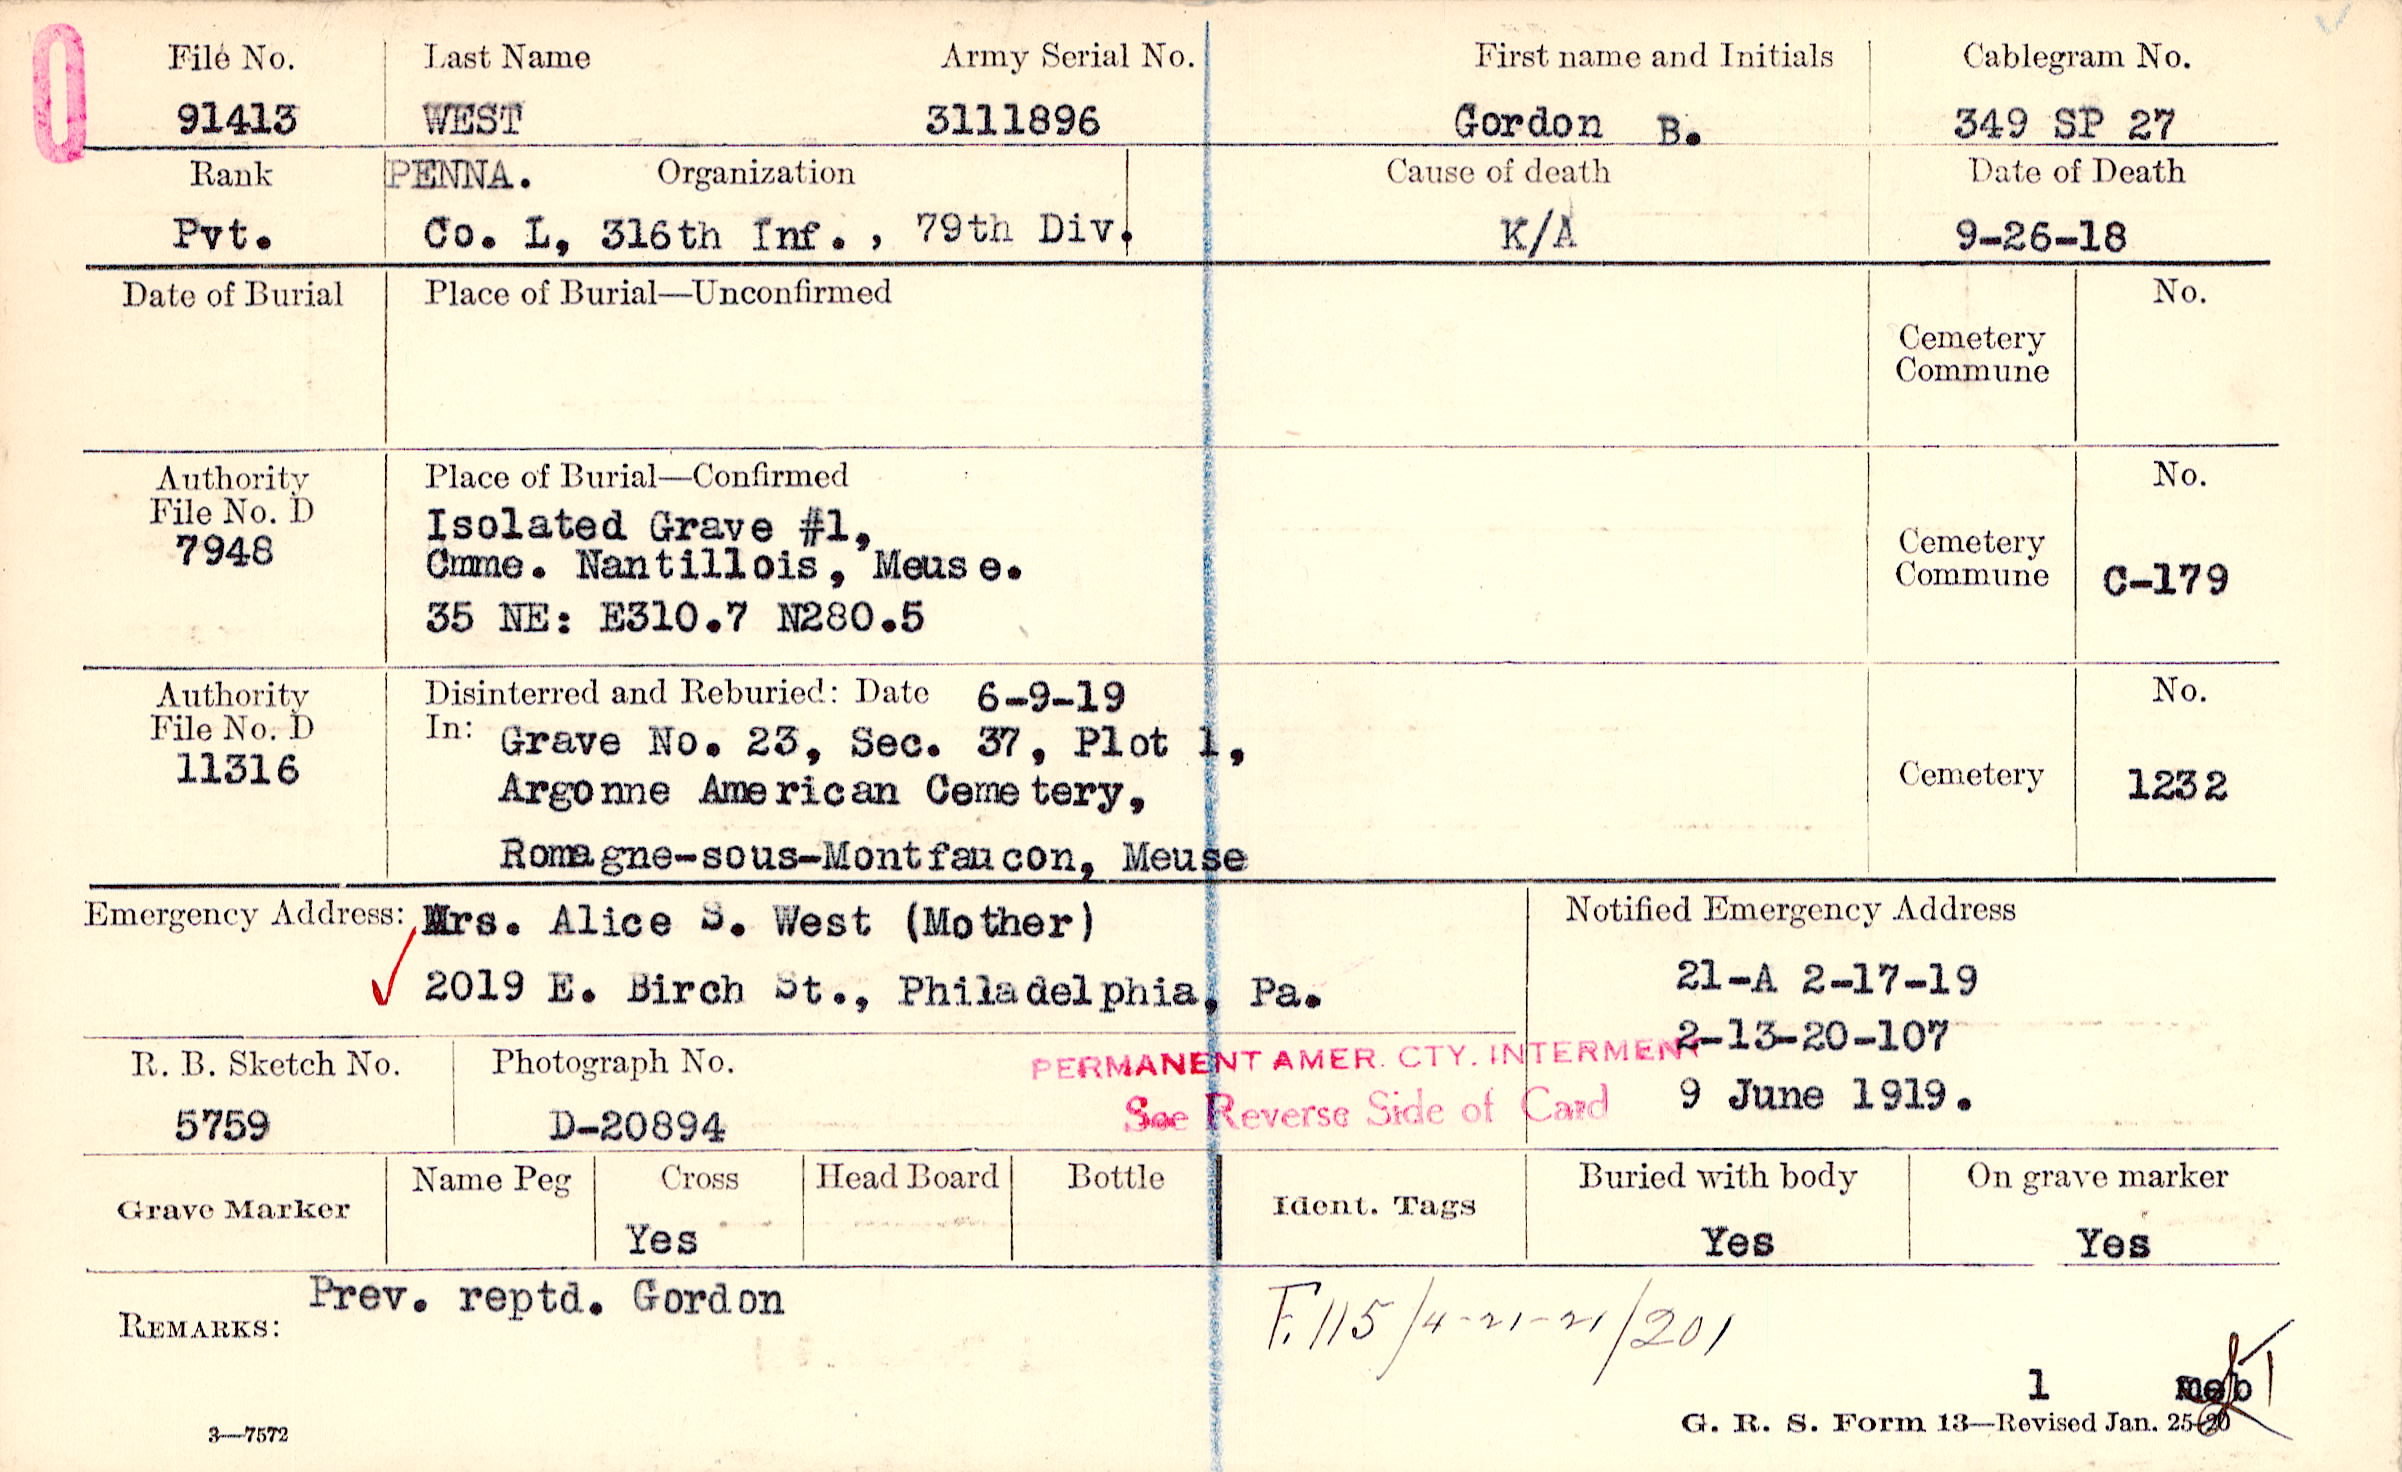 File No. Last Name Army Serial No. First name and Initials Cablegram No.
91413 WEST 3111896 Gordon B. 349 SP 27
Rank PENNA. Organization Cause of death Date of Death
Pvt. Co. L, 316th Inf., 79th Div. K/A 9-26-18
Date of Burial Place of Burial—Unconfirmed No.
Cemetery
Commune
Authority Place of Burial—Confirmed No.
File No. D Isolated Grave #1,
7948 Cmme. Nantillois, Meuse. Cemetery
Commune C-179
35 NE: E310.7 N280.5
Authority Disinterred and Reburied: Date 6-9-19 No.
File No. D In: Grave No. 23, Sec. 37, Plot 1,
11316 Argonne American Cemetery, Cemetery 1232
Romagne-sous-Montfaucon, Meuse
Emergency Address: Mrs. Alice S. West (Mother) Notified Emergency Address
2019 E. Birch St., Philadelphia, Pa. 21-A 2-17-19
2-13-20-107
R. B. Sketch No. Photograph No. PERMANENT AMER. CTY. INTERMENT
5759 D-20894 See Reverse Side of Card 9 June 1919.
Grave Marker Name Peg Cross Head Board Bottle Ident. Tags Buried with body On grave marker
Yes Yes Yes
Prev. reptd. Gordon
REMARKS: F.115/4-21-21/201
1 meb
3—7572 G. R. S. Form 13—Revised Jan. 25-20